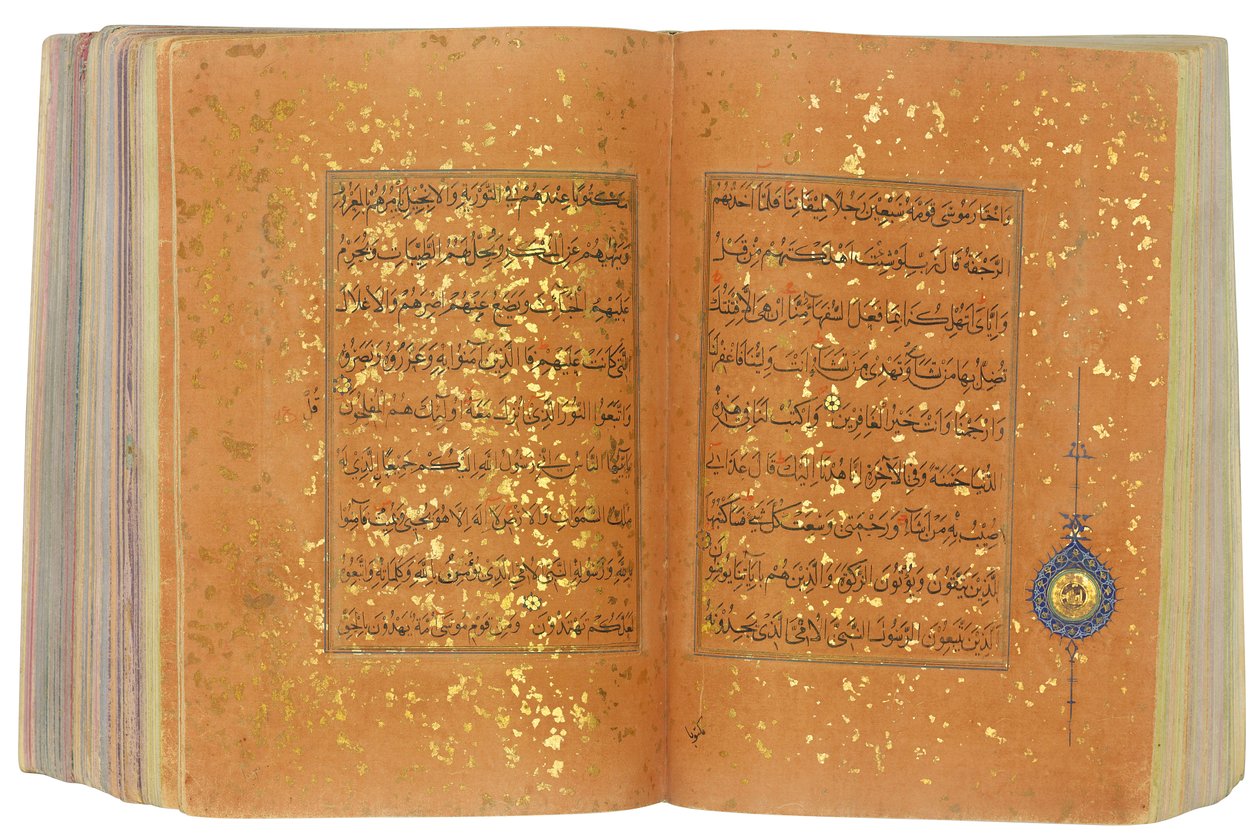 وَاخْتَارَ مُوسَى قَوْمَهُ سَبْعِينَ رَجُلًا لِمِيقَاتِنَا فَلَمَّا أَخَذَتْهُمُ
الرَّجْفَةُ قَالَ رَبِّ لَوْ شِئْتَ أَهْلَكْتَهُمْ مِنْ قَبْلُ
وَإِيَّايَ أَتُهْلِكُنَا بِمَا فَعَلَ السُّفَهَاءُ مِنَّا إِنْ هِيَ إِلَّا فِتْنَتُكَ
تُضِلُّ بِهَا مَنْ تَشَاءُ وَتَهْدِي مَنْ تَشَاءُ أَنْتَ وَلِيُّنَا فَاغْفِرْ لَنَا
وَارْحَمْنَا وَأَنْتَ خَيْرُ الْغَافِرِينَ وَاكْتُبْ لَنَا فِي هَذِهِ
الدُّنْيَا حَسَنَةً وَفِي الْآخِرَةِ إِنَّا هُدْنَا إِلَيْكَ قَالَ عَذَابِي
أُصِيبُ بِهِ مَنْ أَشَاءُ وَرَحْمَتِي وَسِعَتْ كُلَّ شَيْءٍ فَسَأَكْتُبُهَا
لِلَّذِينَ يَتَّقُونَ وَيُؤْتُونَ الزَّكَوةَ وَالَّذِينَ هُمْ بِآيَاتِنَا يُؤْمِنُونَ
الَّذِينَ يَتَّبِعُونَ الرَّسُولَ النَّبِيَّ الْأُمِّيَّ الَّذِي يَجِدُونَهُ
مكتوبا
مَكْتُوبًا عِنْدَهُمْ فِي التَّوْرَيةِ وَالْإِنْجِيلِ يَأْمُرُهُمْ بِالْمَعْرُوفِ
وَيَنْهَيهُمْ عَنِ الْمُنْكَرِ وَيُحِلُّ لَهُمُ الطَّيِّبَاتِ وَيُحَرِّمُ
عَلَيْهِمُ الْخَبَائِثَ وَيَضَعُ عَنْهُمْ إِصْرَهُمْ وَالْأَغْلَالَ
الَّتِي كَانَتْ عَلَيْهِمْ فَالَّذِينَ آمَنُوا بِهِ وَعَزَّرُوهُ وَنَصَرُوهُ
وَاتَّبَعُوا النُّورَ الَّذِي أُنْزِلَ مَعَهُ أُولَئِكَ هُمُ الْمُفْلِحُونَ
قُلْ
يَا أَيُّهَا النَّاسُ إِنِّي رَسُولُ اللَّهِ إِلَيْكُمْ جَمِيعًا الَّذِي لَهُ
مُلْكُ السَّمَوَاتِ وَالْأَرْضِ لَا إِلَهَ إِلَّا هُوَ يُحْيِي وَيُمِيتُ فَآمِنُوا
بِاللَّهِ وَرَسُولِهِ النَّبِيِّ الْأُمِّيِّ الَّذِي يُؤْمِنُ بِاللَّهِ وَكَلِمَاتِهِ وَاتَّبِعُوهُ
لَعَلَّكُمْ تَهْتَدُونَ وَمِنْ قَوْمِ مُوسَى أُمَّةٌ يَهْدُونَ بِالْحَقِّ